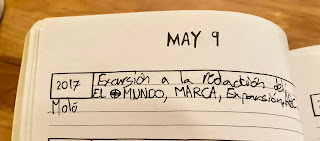 MAY 9
2017 Excursión a la redacción del
EL MUNDO, MARCA, Expansión,
Moló